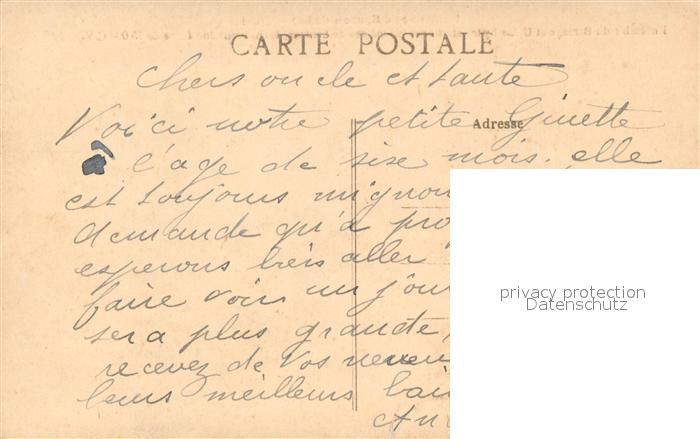 CARTE POSTALE
Chers oncle et tante
Voici notre petite Ginette
Adresse
l'age de sixe mois. elle
est toujours mignon
demande qu'a pro
esperons bien aller
faire voir un jour
sera plus grande,
recevez de Vos neveu
leurs meilleurs bai
An
privacy protection
Datenschutz